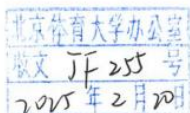 北京体育大学办公室
收文 JF255 号
2025年2月20日